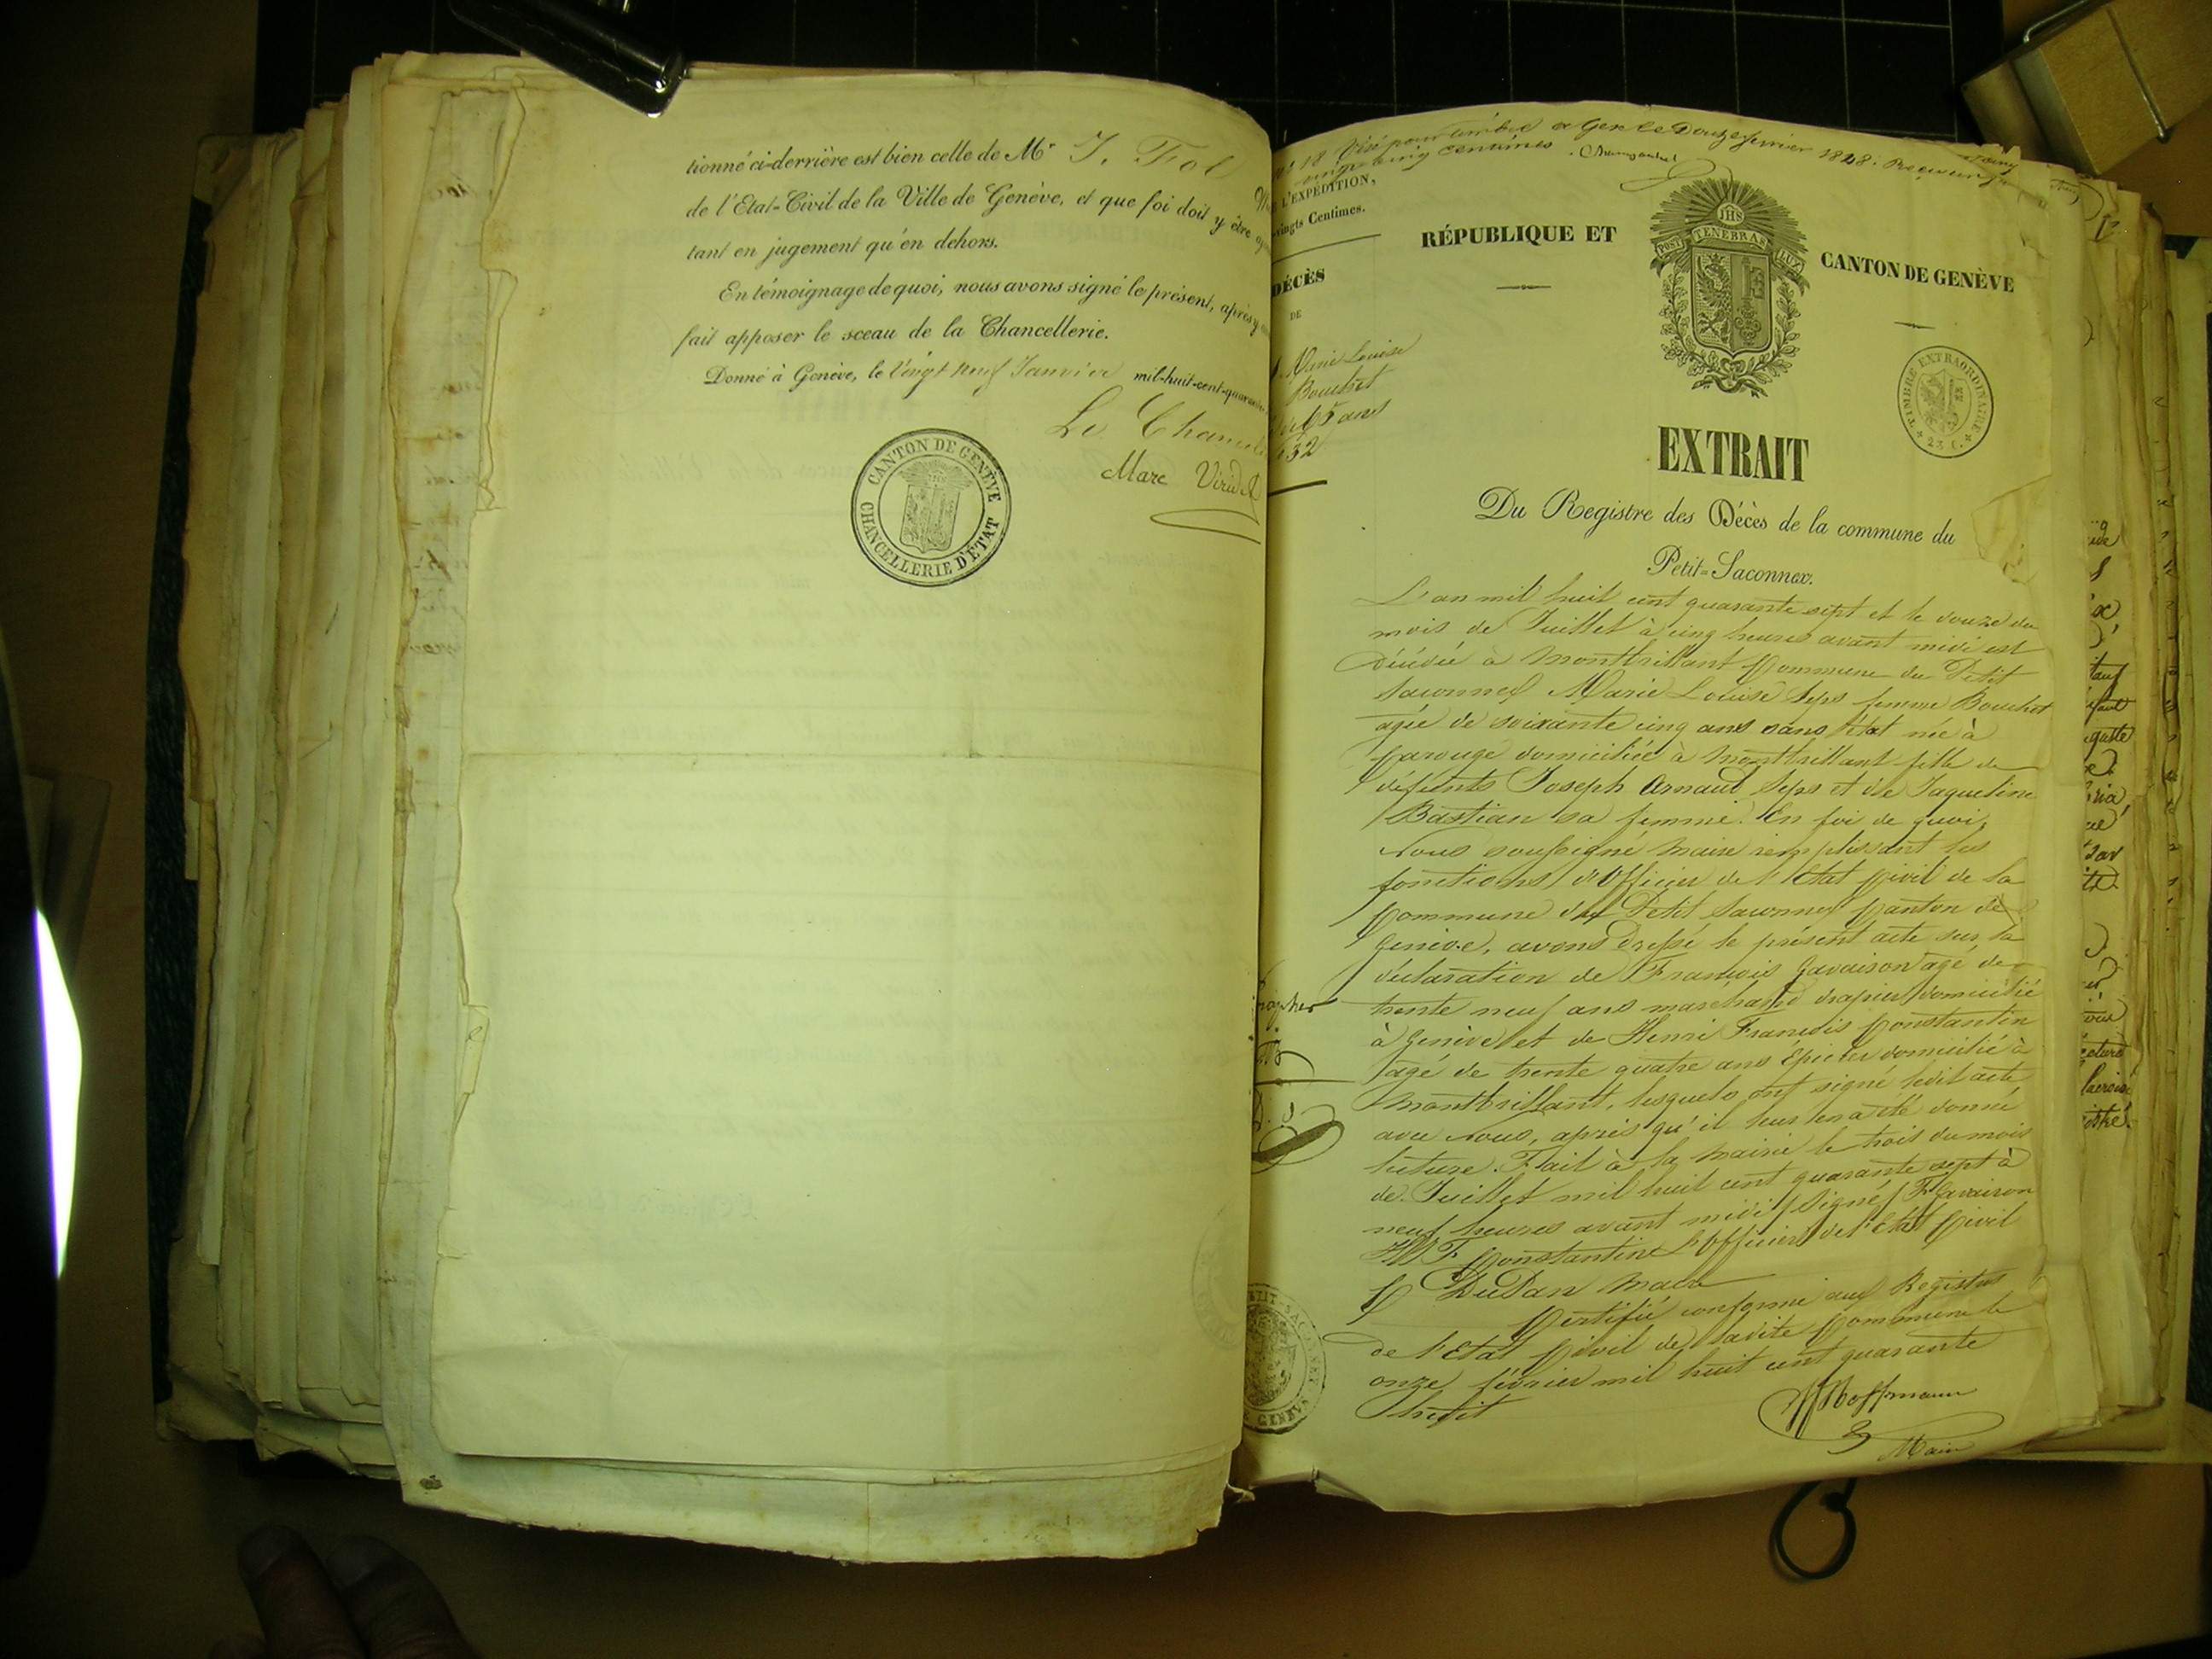 tionné ci-derrière est bien celle de Mr J. Fol
de l'Etat-Civil de la Ville de Genève, et que foi doit y être
tant en jugement qu'en dehors.
En témoignage de quoi, nous avons signé le présent, après y
fait apposer le sceau de la Chancellerie.
Donné à Genève, le Vingt neuf Janvier mil-huit-cent-quarante
Le Chancel
Marc Viridet
CANTON DE GENÈVE
CHANCELLERIE D'ÉTAT
18 Visé pour timbre à Gex le Douze février 1848. Reçu
vingt cinq centimes
L'EXPÉDITION,
vingts Centimes.
DÉCÈS
DE
Marie Louise
Bouchet
65 ans
32
RÉPUBLIQUE ET
CANTON DE GENÈVE
JHS
POST TENEBRAS LUX
TIMBRE EXTRAORDINAIRE
23 C.
EXTRAIT
Du Registre des Décès de la commune du
Petit-Saconnex.
L'an mil huit cent quarante sept et le douze du
mois de Juillet à cinq heures avant midi est
décédée à Montbrillant Commune du Petit
Saconnex Marie Louise Seps femme Bouchet
agée de soixante cinq ans sans état née à
Carouge domiciliée à Montbrillant fille de
défunts Joseph Arnaud Seps et de Jaqueline
Bastian sa femme. En foi de quoi,
Nous soussigné Maire remplissant les
fonctions d'Officier de l'Etat Civil de la
Commune du Petit Saconnex Canton de
Genève, avons dressé le présent acte sur la
déclaration de François Gavairon agé de
trente neuf ans marchand drapier domicilié
à Genève et de Henri François Constantin
agé de trente quatre ans Épicier domicilié à
Montbrillant, lesquels ont signé ledit acte
avec Nous, après qu'il leur en a été donné
lecture. Fait à la Mairie le trois du mois
de Juillet mil huit cent quarante sept à
neuf heures avant midi / Signé / F. Gavairon
H F Constantin L'Officier de l'Etat Civil
DuPan Maire
Certifié conforme aux Registres
de l'Etat Civil de ladite Commune le
onze février mil huit cent quarante
huit
Hoffmann
Maire
PETIT-SACONNEX
GENEVE